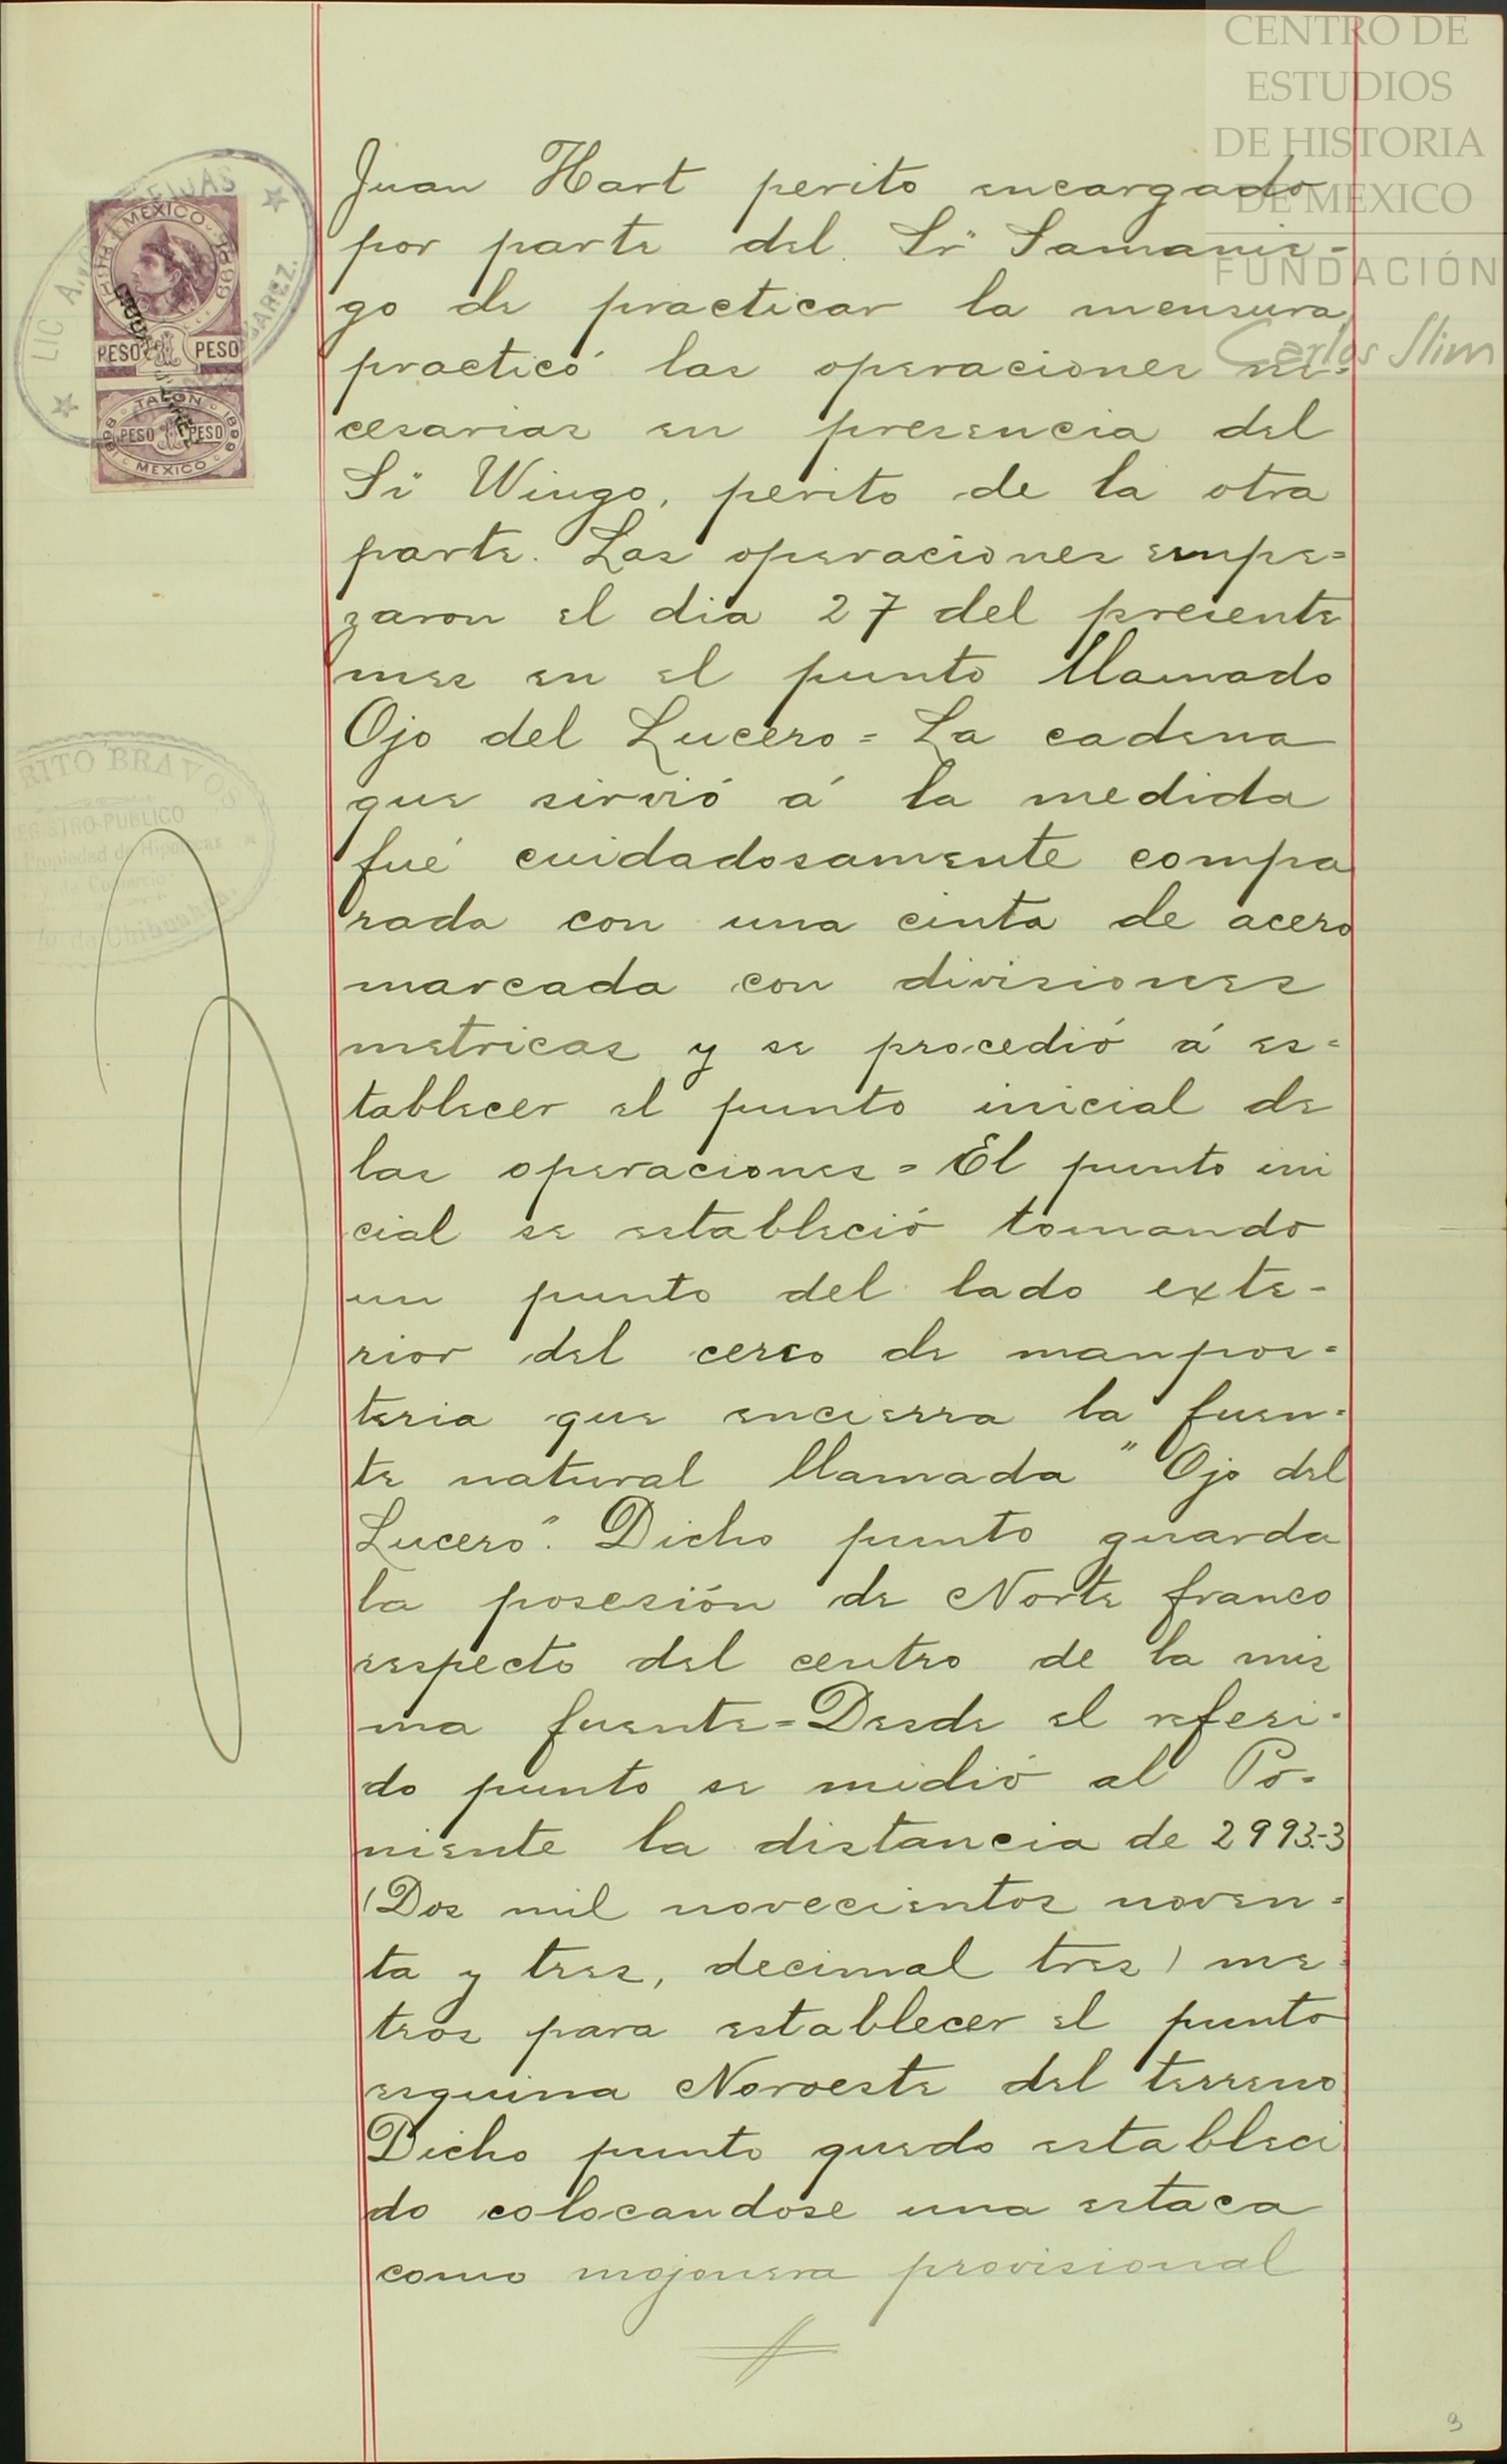 CENTRO DE
ESTUDIOS
DE HISTORIA
DE MEXICO
FUNDACIÓN
Carlos Slim
LIC
JUAREZ.
MEXICO
1898 1899
PESO PESO
TALON
1898 PESO PESO 1899
MEXICO
RITO BRAVOS
REGISTRO PUBLICO
Propiedad de Hipotecas
Comercio
de Chihuahua
Juan Hart perito encargado
por parte del Sr Samanie-
go de practicar la mensura,
practicó las operaciones ne=
cesarias en presencia del
Sr Wingo, perito de la otra
parte. Las operaciones empe=
zaron el dia 27 del presente
mes en el punto llamado
Ojo del Lucero = La cadena
que sirvió á la medida
fué cuidadosamente compa
rada con una cinta de acero
marcada con divisiones
metricas y se procedió á es=
tablecer el punto inicial de
las operaciones = El punto ini
cial se estableció tomando
un punto del lado exte-
rior del cerco de manpos=
teria que encierra la fuen=
te natural llamada "Ojo del
Lucero". Dicho punto guarda
la posesión de Norte franco
respecto del centro de la mis
ma fuente = Desde el referi-
do punto se midió al Po=
niente la distancia de 2993.-3
(Dos mil novecientos noven=
ta y tres, decimal tres) me
tros para establecer el punto
esquina Noroeste del terreno
Dicho punto quedo estableci
do colocandose una estaca
como mojonera provisional
3